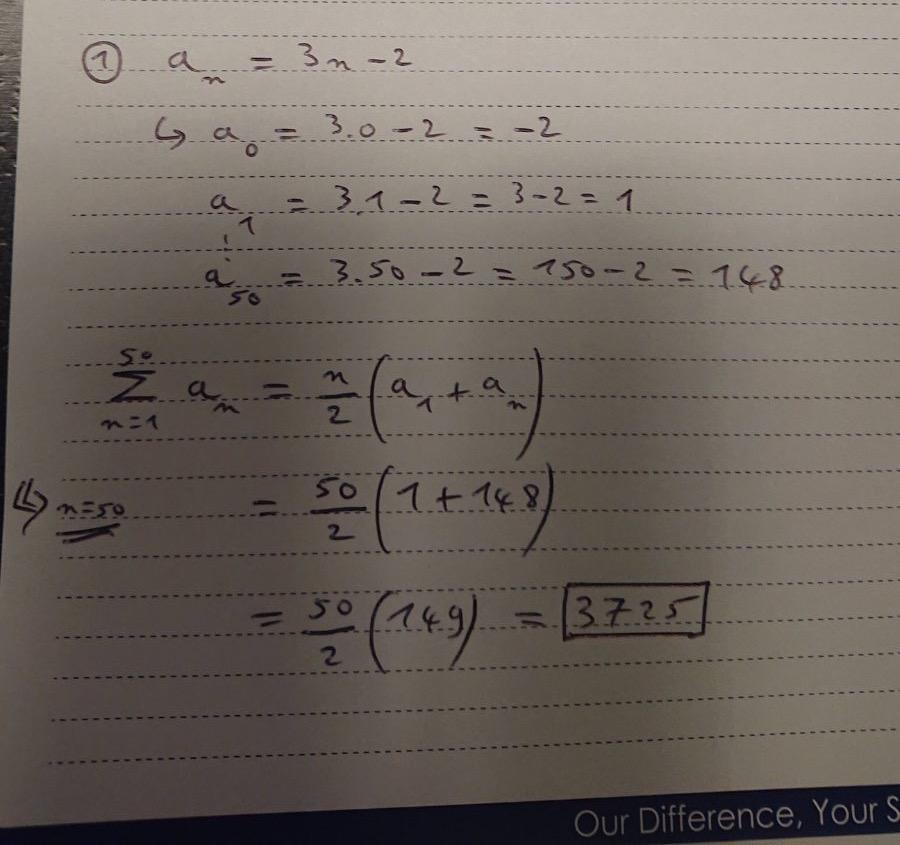 ① aₙ = 3n - 2
↳ a₀ = 3.0 - 2 = -2
a₁ = 3.1 - 2 = 3 - 2 = 1
⋮
a₅₀ = 3.50 - 2 = 150 - 2 = 148
50
Σ aₙ = n/2 (a₁ + aₙ)
n=1
↳ n=50 = 50/2 (1 + 148)
= 50/2 (149) = 3725
Our Difference, Your S